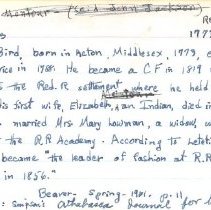 (said John Jackson)
Bird, born in Acton, Middlesex, 1773, e
vice in 1788. He became a CF in 1819
the Red R settlement where he held
his first wife, Elizabeth, an Indian, died in
married Mrs Mary Lowman, a widow, w
the R.R Academy. According to Letiti
became "the leader of fashion at R.R
in 1856."
Beaver - Spring - 1961. p. 11
: Simpson's Athabasca Journal for